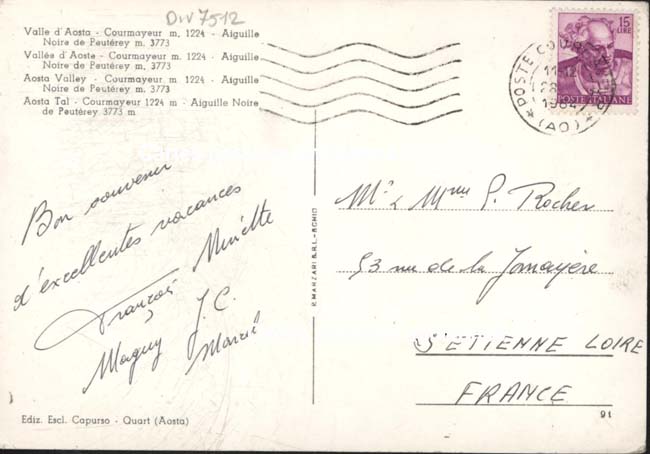 Div 7512
Valle d'Aosta - Courmayeur m. 1224 - Aiguille
Noire de Peutérey m. 3773
Vallée d'Aoste - Courmayeur m. 1224 - Aiguille
Noire de Peutérey m. 3773
Aosta Valley - Courmayeur m. 1224 - Aiguille
Noire de Peutérey m. 3773
Aosta Tal - Courmayeur 1224 m - Aiguille Noire
de Peutérey 3773 m.
15
LIRE
POSTE ITALIANE
POSTE
11-12
28
1964
(AO)
Bon souvenir
d'excellentes vacances
François Minette
Maguy J.C.
Marcel
R. MANZARI S.R.L.
Mr & Mme P. Rocher
53 rue de la Jomayère
ST ETIENNE LOIRE
FRANCE
Ediz. Escl. Capurso - Quart (Aosta)
91